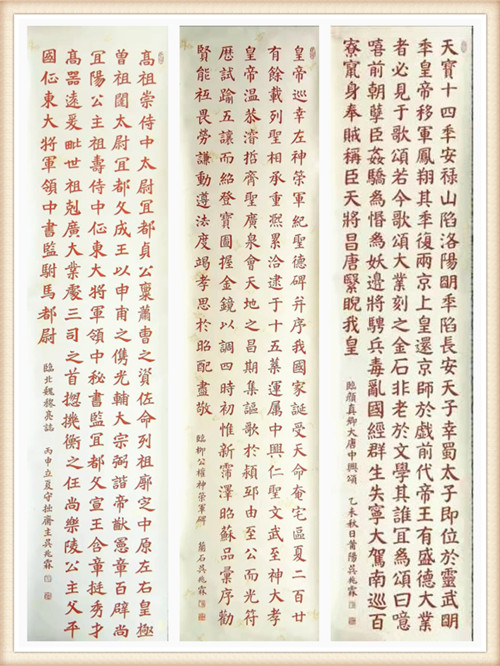 天寶十四秊安祿山陷洛陽明秊陷長安天子幸蜀太子即位於靈武明
秊皇帝移軍鳳翔其秊復兩京上皇還京師於戲前代帝王有盛德大業
者必見于歌頌若今歌頌大業刻之金石非老於文學其誰宜為頌曰噫
嘻前朝孽臣姦驕為惛為妖邊將騁兵毒亂國經群生失寧大駕南巡百
寮竄身奉賊稱臣天將昌唐繄睨我皇
臨顏真卿大唐中興頌 乙未秋日莆陽吳兆霖
皇帝巡幸左神策軍紀聖德碑并序我國家誕受天命奄宅區夏二百廿
有餘載列聖相承重熙累洽逮于十五葉運屬中興仁聖文武至神大孝
皇帝溫恭濬哲齊聖廣泉會天地之昌期集謳歌於潁邸由至公而光符
歷試踰五讓而紹登寶圖握金鏡以調四時初惟新霈澤昭蘇品彙序勸
賢能祗畏勞謙動遵法度竭孝思於昭配盡敬
臨柳公權神策軍碑 蘭石吳兆霖
高祖崇侍中太尉宜都貞公稟蕭曹之資佐命列祖廓定中原左右皇極
曾祖闓太尉宜都文成王以申甫之儁光輔大宗弼諧帝猷憲章百辟尚
宜陽公主祖壽侍中征東大將軍領中秘書監宜都文宣王含章挺秀才
高器遠爰毗世祖剋廣大業處三司之首揔機衡之任尚樂陵公主父平
國征東大將軍領中書監駙馬都尉
臨北魏穆亮誌 丙申立夏守拙齋主吳兆霖